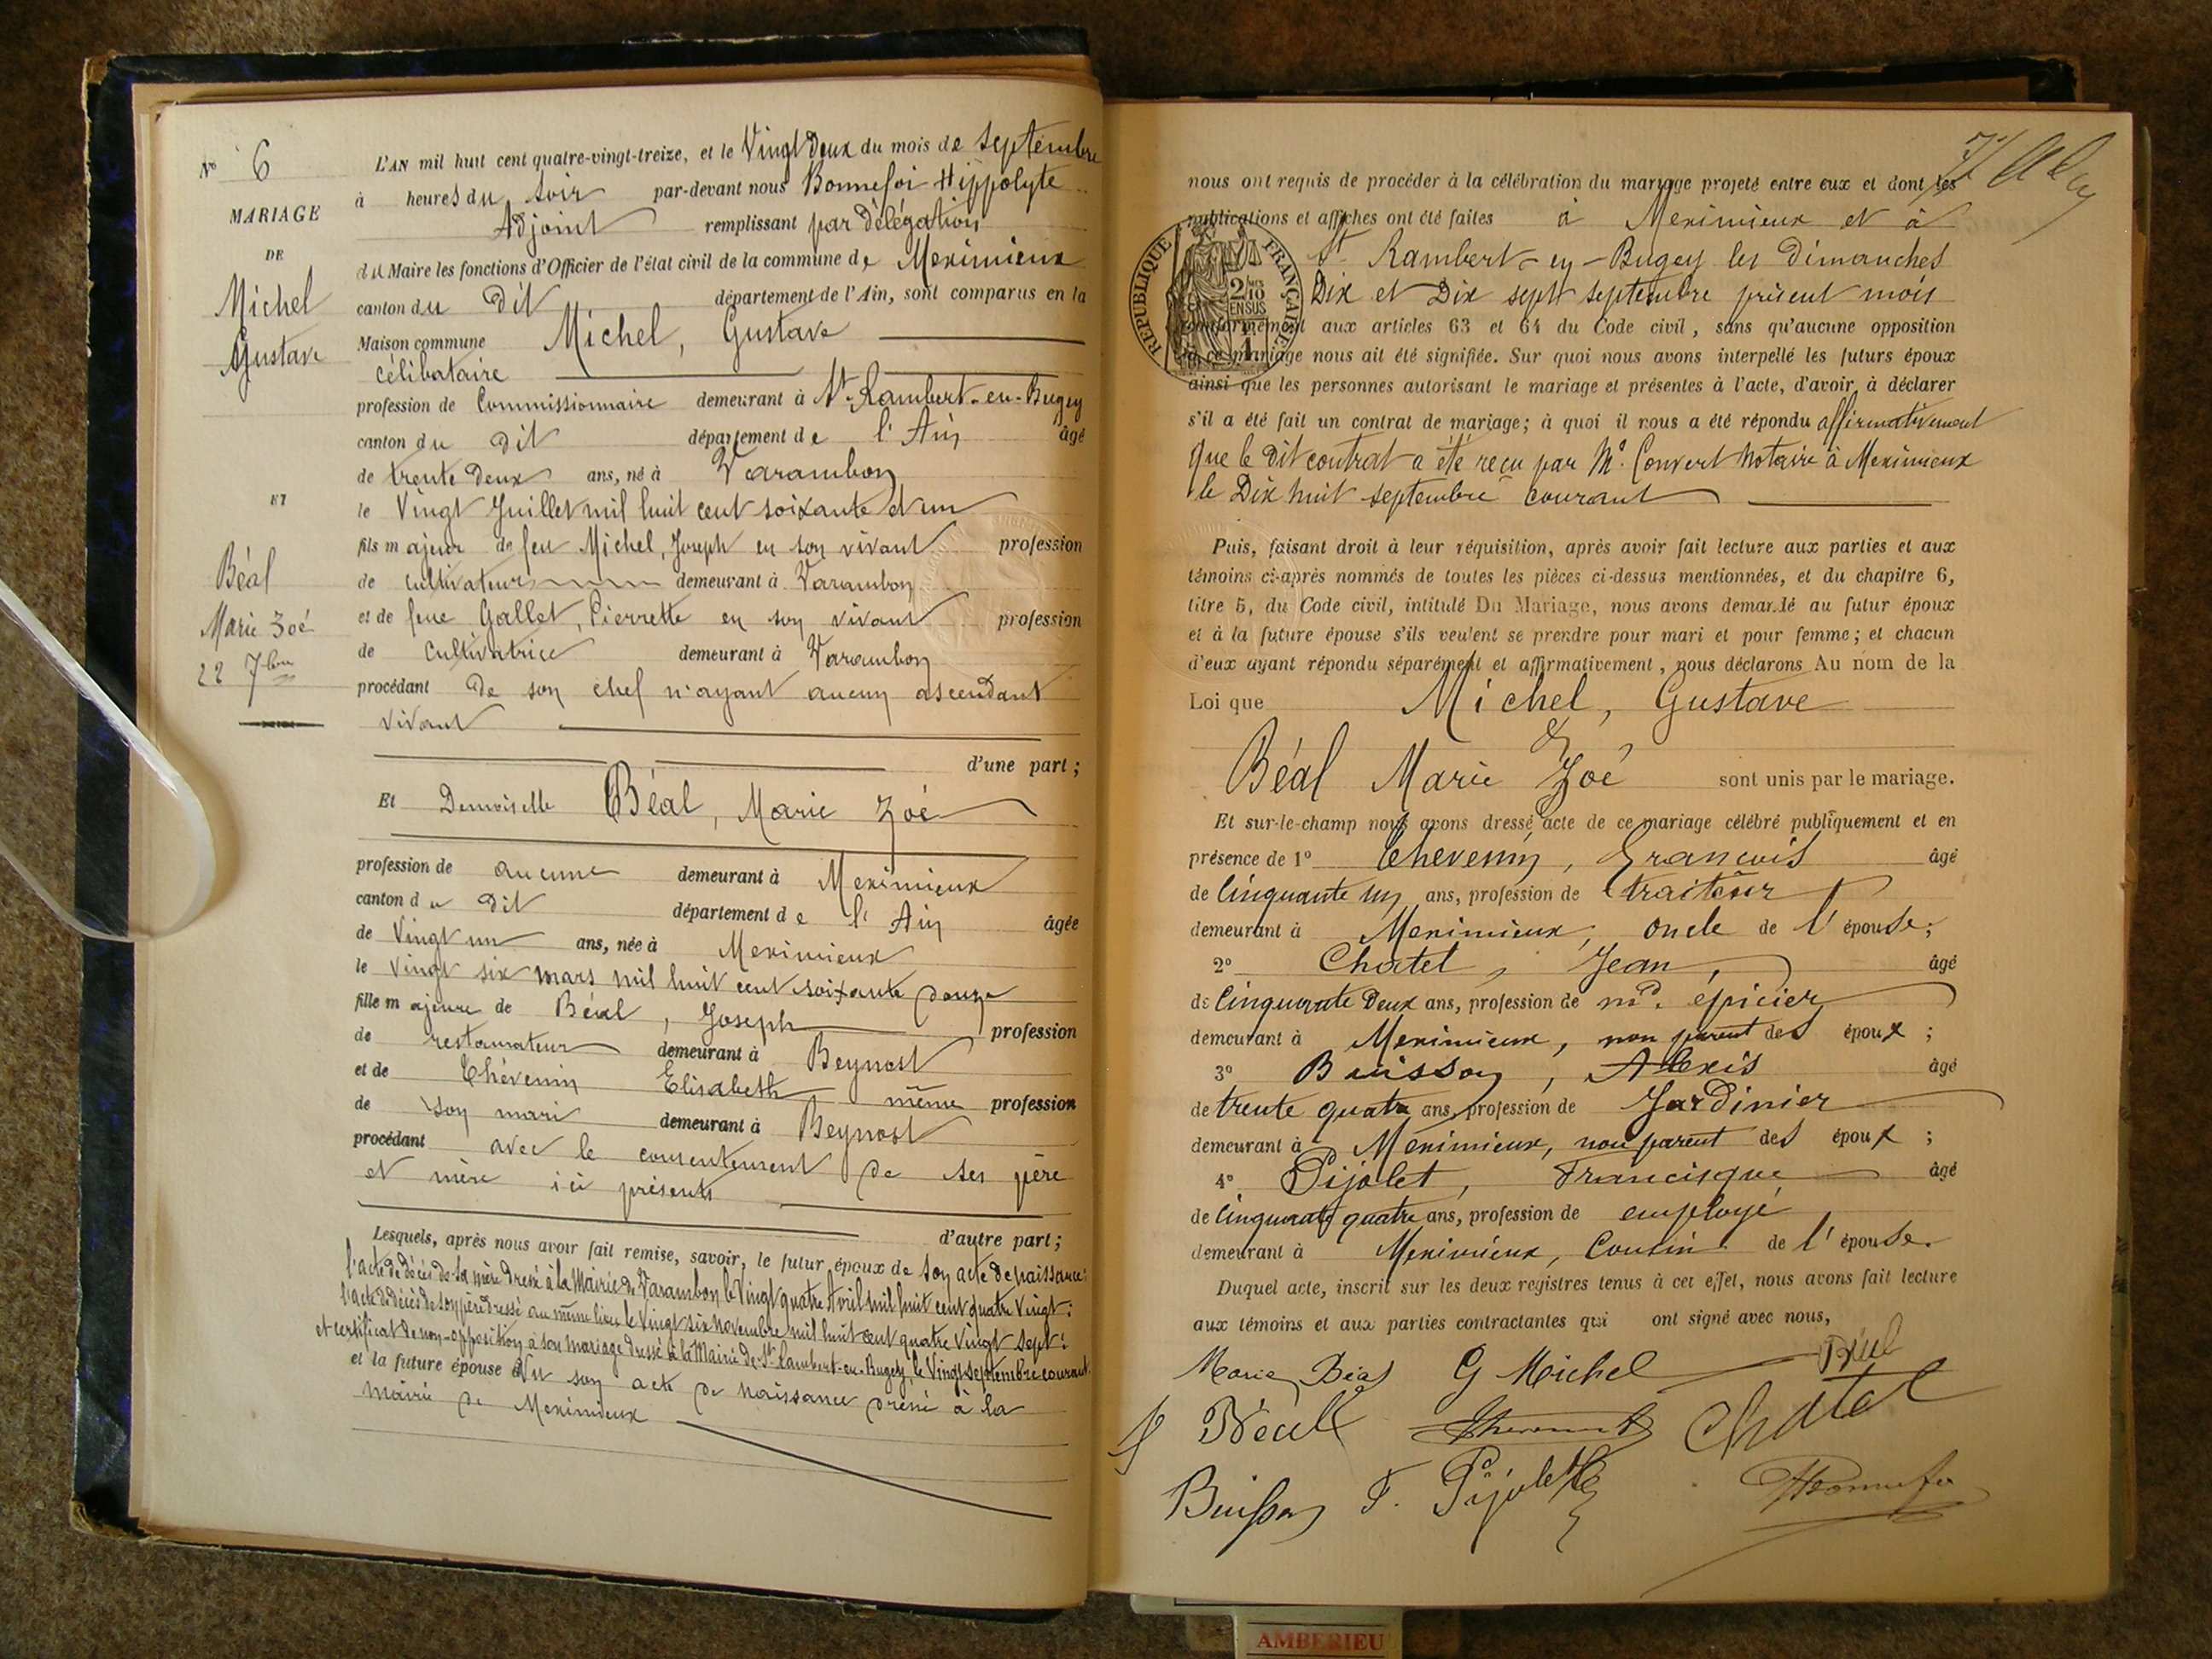 N° 6
MARIAGE
DE
Michel
Gustave
ET
Béal
Marie Zoé
22 7bre
L'AN mil huit cent quatre-vingt-treize, et le Vingt Deux du mois de Septembre
à heures du soir par-devant nous Bonnefoi Hippolyte
Adjoint remplissant par Délégation
du Maire les fonctions d'Officier de l'état civil de la commune de Meximieux
canton du Dit département de l'Ain, sont comparus en la
Maison commune Michel, Gustave
célibataire
profession de Commissionnaire demeurant à St Rambert-en-Bugey
canton du Dit département de l'Ain âgé
de trente Deux ans, né à Varambon
le Vingt Juillet mil huit cent soixante et un
fils majeur de feu Michel, Joseph en son vivant profession
de cultivateur demeurant à Varambon
et de feue Gallet, Pierrette en son vivant profession
de Cultivatrice demeurant à Varambon
procédant De son chef n'ayant aucun ascendant
vivant
d'une part;
Et Demoiselle Béal, Marie Zoé
profession de aucune demeurant à Meximieux
canton du Dit département de l'Ain âgée
de Vingt un ans, née à Meximieux
le Vingt six mars mil huit cent soixante douze
fille majeure de Béal, Joseph profession
de restaurateur demeurant à Beynost
et de Thévenin Elisabeth même profession
de son mari demeurant à Beynost
procédant avec le consentement de ses père
et mère ici présents
d'autre part;
Lesquels, après nous avoir fait remise, savoir, le futur époux de son acte de naissance:
l'acte de décès de sa mère dressé à la Mairie de Varambon le Vingt quatre Avril mil huit cent quatre Vingt;
l'acte de décès de son père dressé au même lieu le Vingt six novembre mil huit cent quatre Vingt Sept;
et certificat de non-opposition à son mariage dressé à la Mairie de St Rambert-en-Bugey le Vingt septembre courant.
et la future épouse de son acte de naissance dressé à la
mairie de Meximieux
nous ont requis de procéder à la célébration du mariage projeté entre eux et dont les
publications et affiches ont été faites à Meximieux et à
St Rambert-en-Bugey les Dimanches
Dix et Dix sept septembre présent mois
conformément aux articles 63 et 64 du Code civil, sans qu'aucune opposition
à ce mariage nous ait été signifiée. Sur quoi nous avons interpellé les futurs époux
ainsi que les personnes autorisant le mariage et présentes à l'acte, d'avoir à déclarer
s'il a été fait un contrat de mariage; à quoi il nous a été répondu affirmativement
Que le Dit contrat a été reçu par Me Convert Notaire à Meximieux
le Dix huit septembre courant
RÉPUBLIQUE FRANÇAISE
2/10 EN SUS
Puis, faisant droit à leur réquisition, après avoir fait lecture aux parties et aux
témoins ci-après nommés de toutes les pièces ci-dessus mentionnées, et du chapitre 6,
titre 5, du Code civil, intitulé Du Mariage, nous avons demandé au futur époux
et à la future épouse s'ils veulent se prendre pour mari et pour femme; et chacun
d'eux ayant répondu séparément et affirmativement, nous déclarons Au nom de la
Loi que Michel, Gustave
&
Béal Marie Zoé sont unis par le mariage.
Et sur-le-champ nous avons dressé acte de ce mariage célébré publiquement et en
présence de 1° Thevenin, François âgé
de Cinquante un ans, profession de traiteur
demeurant à Meximieux, oncle de l'épouse;
2° Chatel, Jean, âgé
de Cinquante Deux ans, profession de md. épicier
demeurant à Meximieux, non parent des époux;
3° Buisson, Alexis âgé
de trente quatre ans, profession de Jardinier
demeurant à Meximieux, non parent des époux;
4° Pijolet, Francisque âgé
de Cinquante quatre ans, profession de employé
demeurant à Meximieux, Cousin de l'épouse.
Duquel acte, inscrit sur les deux registres tenus à cet effet, nous avons fait lecture
aux témoins et aux parties contractantes qui ont signé avec nous,
Marie Béal G Michel Béal
Béal Thevenin Chatel
Buisson F. Pijolet HBonnefoi
AMBERIEU